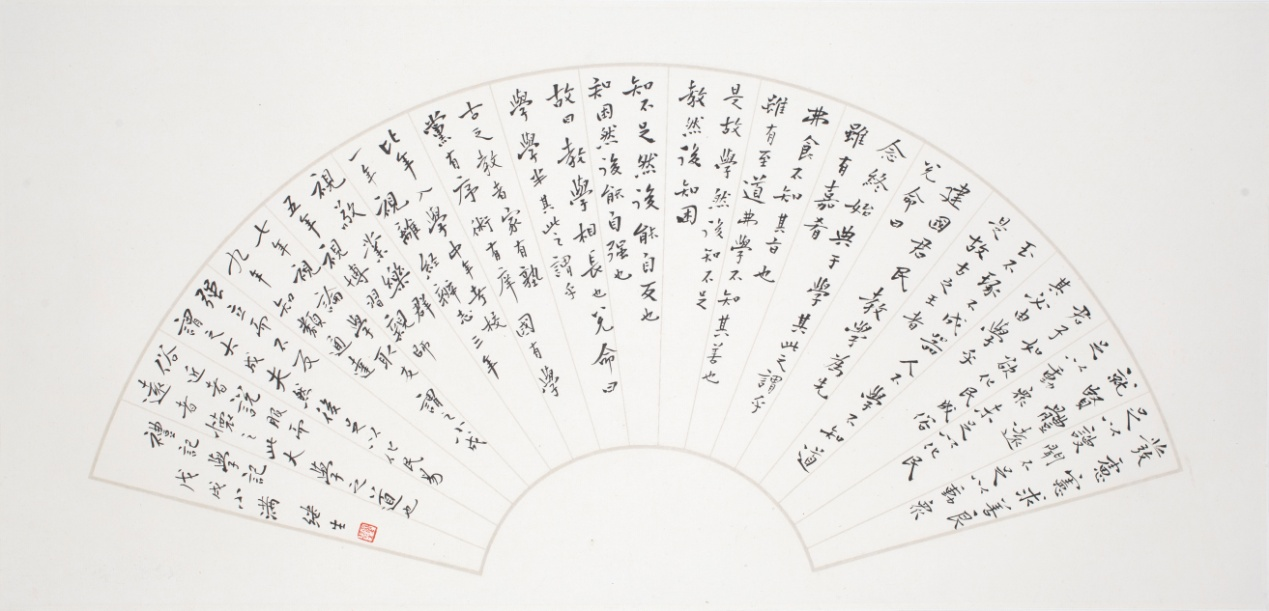 發慮憲求善良
足以謏聞不足以動眾
就賢體遠足以動眾未足以化民
君子如欲化民成俗
其必由學乎
玉不琢不成器人不學不知道
是故古之王者
建國君民教學為先
兌命曰
念終始典于學其此之謂乎
雖有嘉肴
弗食不知其旨也
雖有至道弗學不知其善也
是故學然後知不足
教然後知困
知不足然後能自反也
知困然後能自强也
故曰教學相長也兌命曰
學學半其此之謂乎
古之教者家有塾
黨有序術有庠國有學
比年入學中年考校
一年視離經辨志三年
視敬業樂群
五年視博習親師
七年視論學取友謂之小成
九年知類通達
强立而不反
謂之大成夫然後足以化民易
俗近者說服而
遠者懷之此大學之道也
禮記學記
戊戌小滿 继生